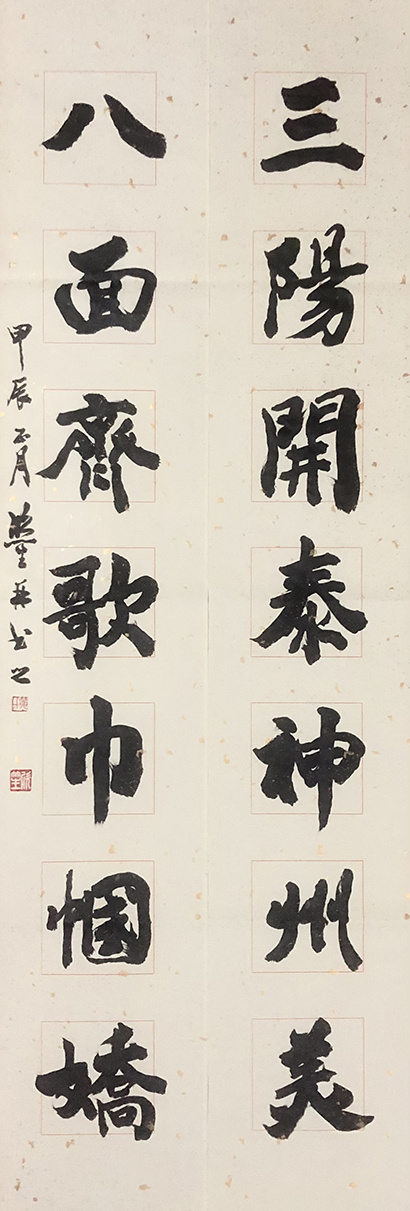 三陽開泰神州美
八面齊歌巾幗嬌
甲辰正月
書之